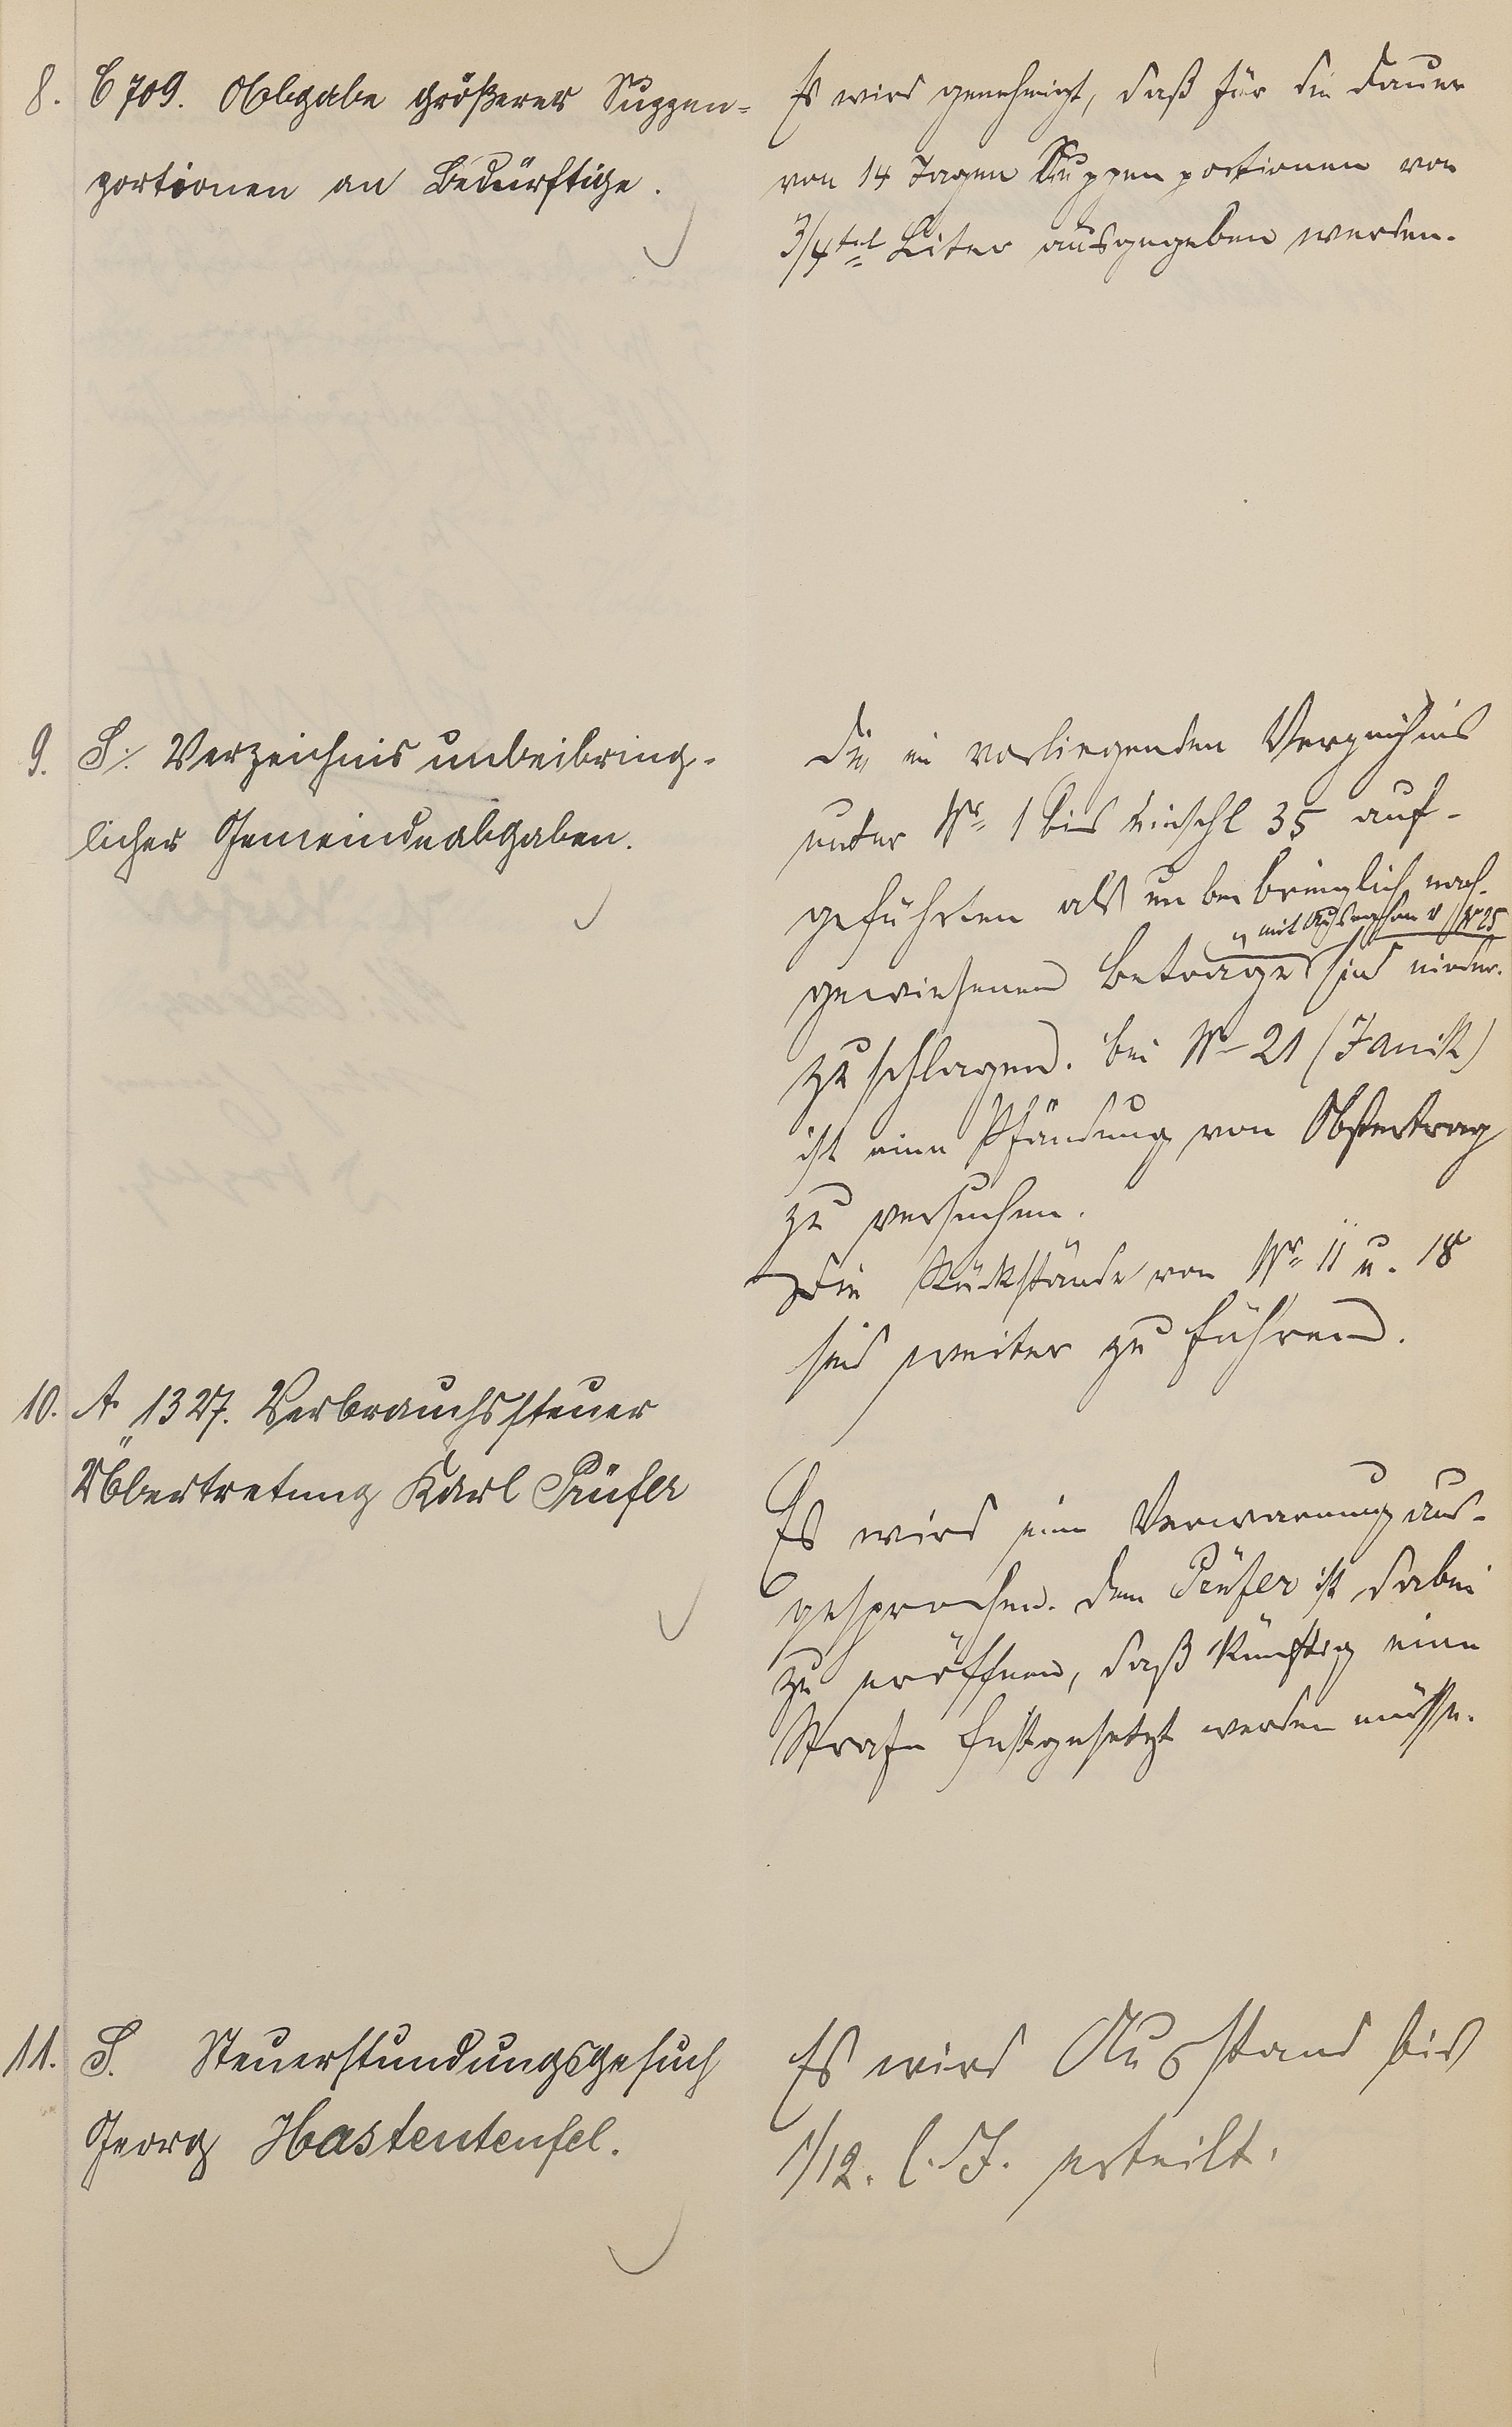 8. C 709. Abgabe größerer Suppen-
portionen an Bedürftige.
Es wird genehmigt, daß für die Dauer
von 14 Tagen Suppenportionen von
3/4tel Liter ausgegeben werden.
9. S. Verzeichnis unbeibring-
licher Gemeindeabgaben.
Die in vorliegenden Verzeichnis
unter Nr. 1 bis einschl 35 auf-
geführten als unbeibringlich nach-
mit Ausnahme v Nr 25
gewiesenen Beträge sind nieder-
zuschlagen. bei Nr 21 (Janik)
ist eine Pfändung von Obstertrag
zu versuchen.
Die Rückstände von Nr. 11 u. 18
sind weiter zu führen.
10. A 1327. Verbrauchssteuer
Übertretung Karl Prüfer
Es wird eine Verwarnung aus-
gesprochen. Dem Prüfer ist dabei
zu eröffnen, daß künftig eine
Strafe festgesetzt werden müsse.
11. S. Steuerstundungsgesuch
Georg Hastenteufel.
Es wird Ausstand bis
1/12. l. J. erteilt.